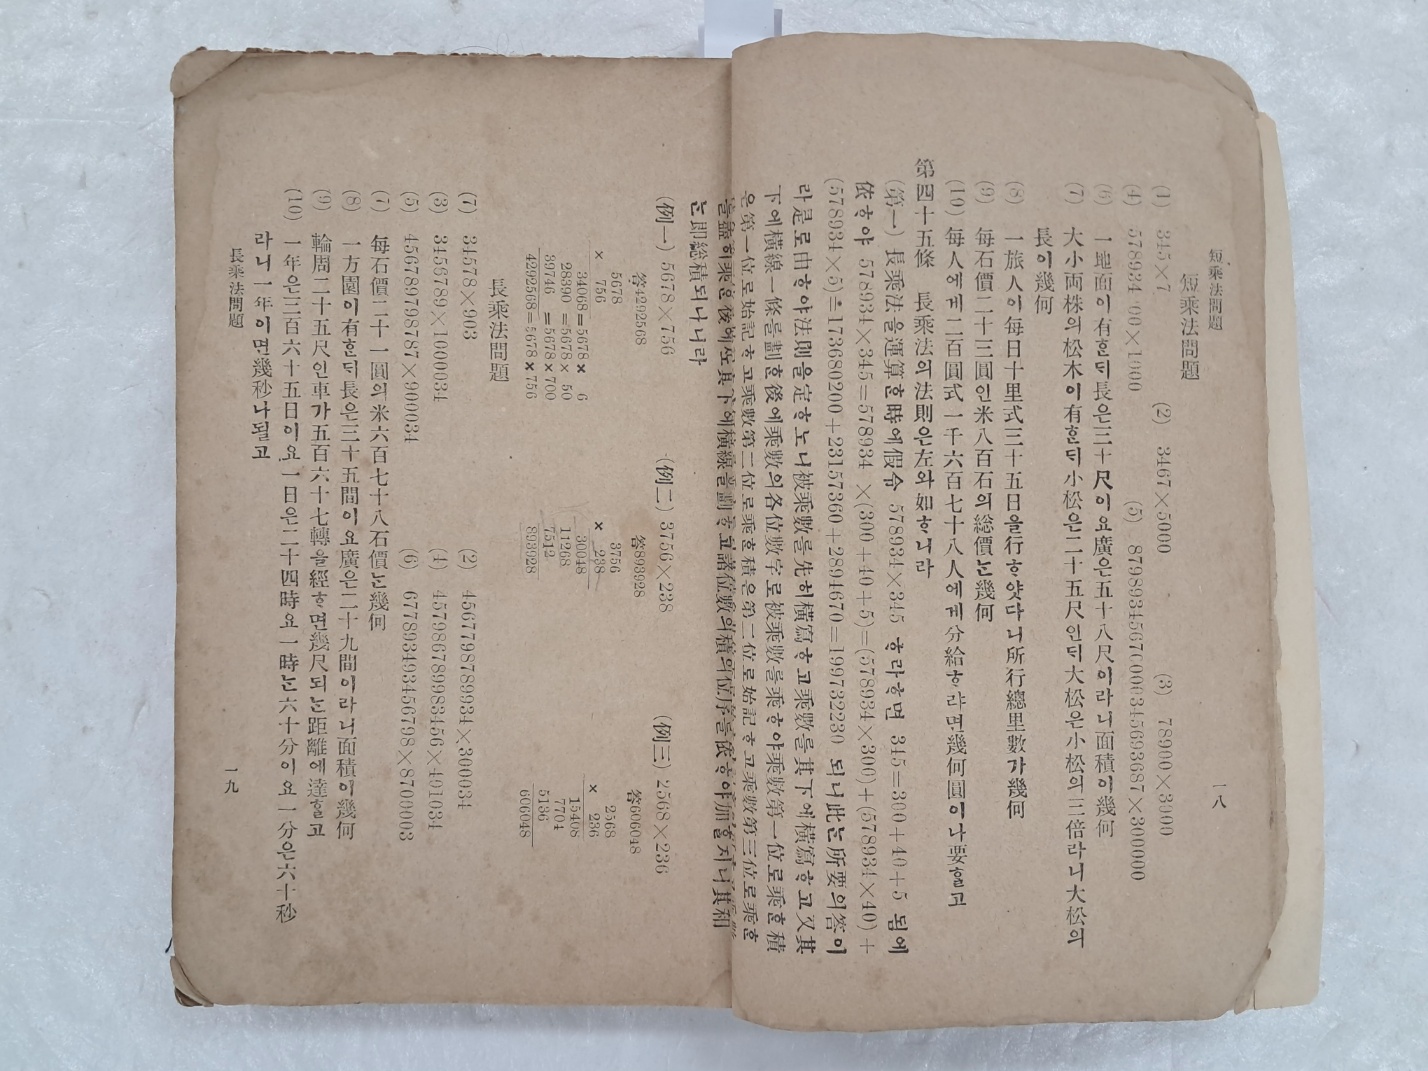 短乘法問題
一八
短乘法問題
(1) 345×7 (2) 3467×5000 (3) 78900×3000
(4) 578934 00×1000 (5) 87989345670000345693687×300000
(6) 一地面이有ᄒᆞᆫᄃᆡ長은三十尺이요廣은五十八尺이라니面積이幾何
(7) 大小両株의松木이有ᄒᆞᆫᄃᆡ小松은二十五尺인ᄃᆡ大松은小松의三倍라니大松의
長이幾何
(8) 一旅人이每日十里式三十五日을行ᄒᆞ얏다니所行總里數가幾何
(9) 每石價二十三圓인米八百石의総價ᄂᆞᆫ幾何
(10) 每人에게二百圓式一千六百七十八人에게分給ᄒᆞ랴면幾何圓이나要ᄒᆞᆯ고
第四十五條 長乘法의法則은左와如ᄒᆞ니라
(第一) 長乘法을運算ᄒᆞᆯ時에假令 578934×345 ᄒᆞ라ᄒᆞ면 345=300+40+5 됨에
依ᄒᆞ야 578934×345=578934 ×(300+40+5)=(578934×300)+(578934×40)+
(578934×5)=173680200+23157360+2894670=199732230 되니此ᄂᆞᆫ所要의答이
라是로由ᄒᆞ야法則을定ᄒᆞ노니被乘數를先히橫寫ᄒᆞ고乘數를其下에橫寫ᄒᆞ고又其
下에橫線一條를劃ᄒᆞᆫ後에乘數의各位數字로被乘數를乘ᄒᆞ야乘數第一位로乘ᄒᆞᆫ積
은第一位로始記ᄒᆞ고乘數第二位로乘ᄒᆞᆫ積은第二位로始記ᄒᆞ고乘數第三位로乘ᄒᆞᆫ
乘ᄒᆞᆫ後에 其下에橫線을劃ᄒᆞ고諸位數의積의位序를依ᄒᆞ야加ᄒᆞᆯ지니其和
ᄂᆞᆫ即総積되나니라
(例一) 5678×756 (例二) 3756×238 (例三) 2568×236
答4292568 答893928 答606048
5678
× 756
34068=5678× 6
28390 =5678× 50
39746 =5678×700
4292568=5678×756
3756
× 238
30048
11268
7512
893928
2568
× 236
15408
7704
5136
606048
長乘法問題
(7) 34578×903 (2) 4567798789934×300034
(3) 3456789×1000034 (4) 457986789983456×401034
(5) 4567897987​87×900034 (6) 6778934934567​98×8700003
(7) 每石價二十一圓의米六百七十八石價ᄂᆞᆫ幾何
(8) 一方園이有ᄒᆞᆫᄃᆡ長은三十五間이요廣은二十九間이라니面積이幾何
(9) 輪周二十五尺인車가五百六十七轉을經ᄒᆞ면幾尺되ᄂᆞᆫ距離에達ᄒᆞᆯ고
(10) 一年은三百六十五日이요一日은二十四時요一時ᄂᆞᆫ六十分이요一分은六十秒
라니一年이면幾秒나될고
長乘法問題
一九